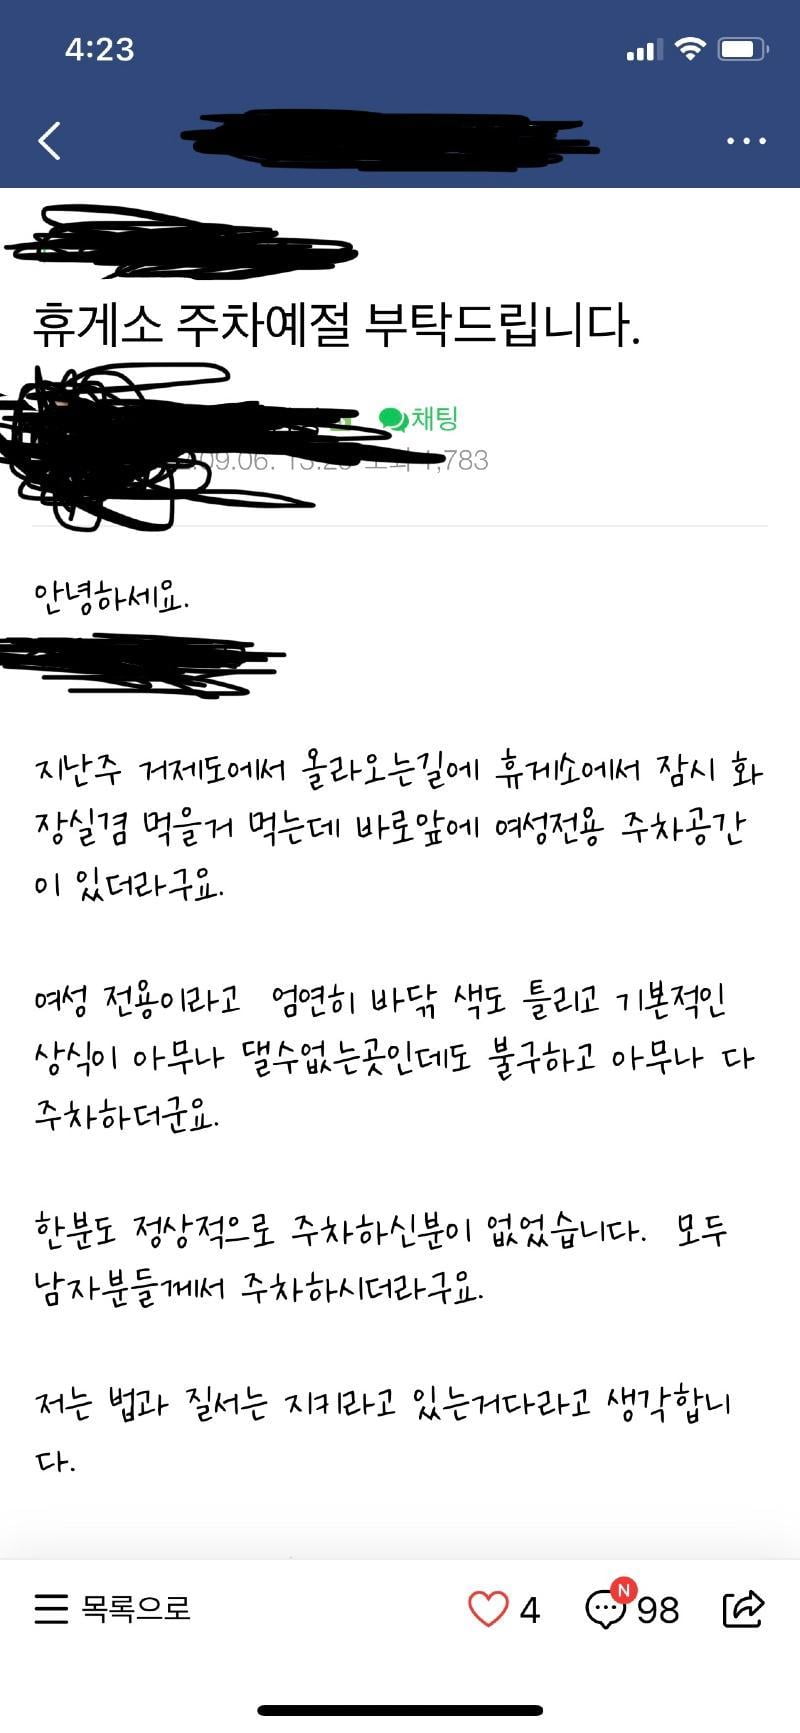 4:23
휴게소 주차예절 부탁드립니다.
채팅
783
안녕하세요.
지난주 거제도에서 올라오는길에 휴게소에서 잠시 화
장실겸 먹을거 먹는데 바로앞에 여성전용 주차공간
이 있더라구요.
여성 전용이라고 엄연히 바닦 색도 틀리고 기본적인
상식이 아무나 댈수없는곳인데도 불구하고 아무나 다
주차하더군요.
한분도 정상적으로 주차하신분이 없었습니다. 모두
남자분들께서 주차하시더라구요.
저는 법과 질서는 지키라고 있는거다라고 생각합니
다.
목록으로 4 N 98